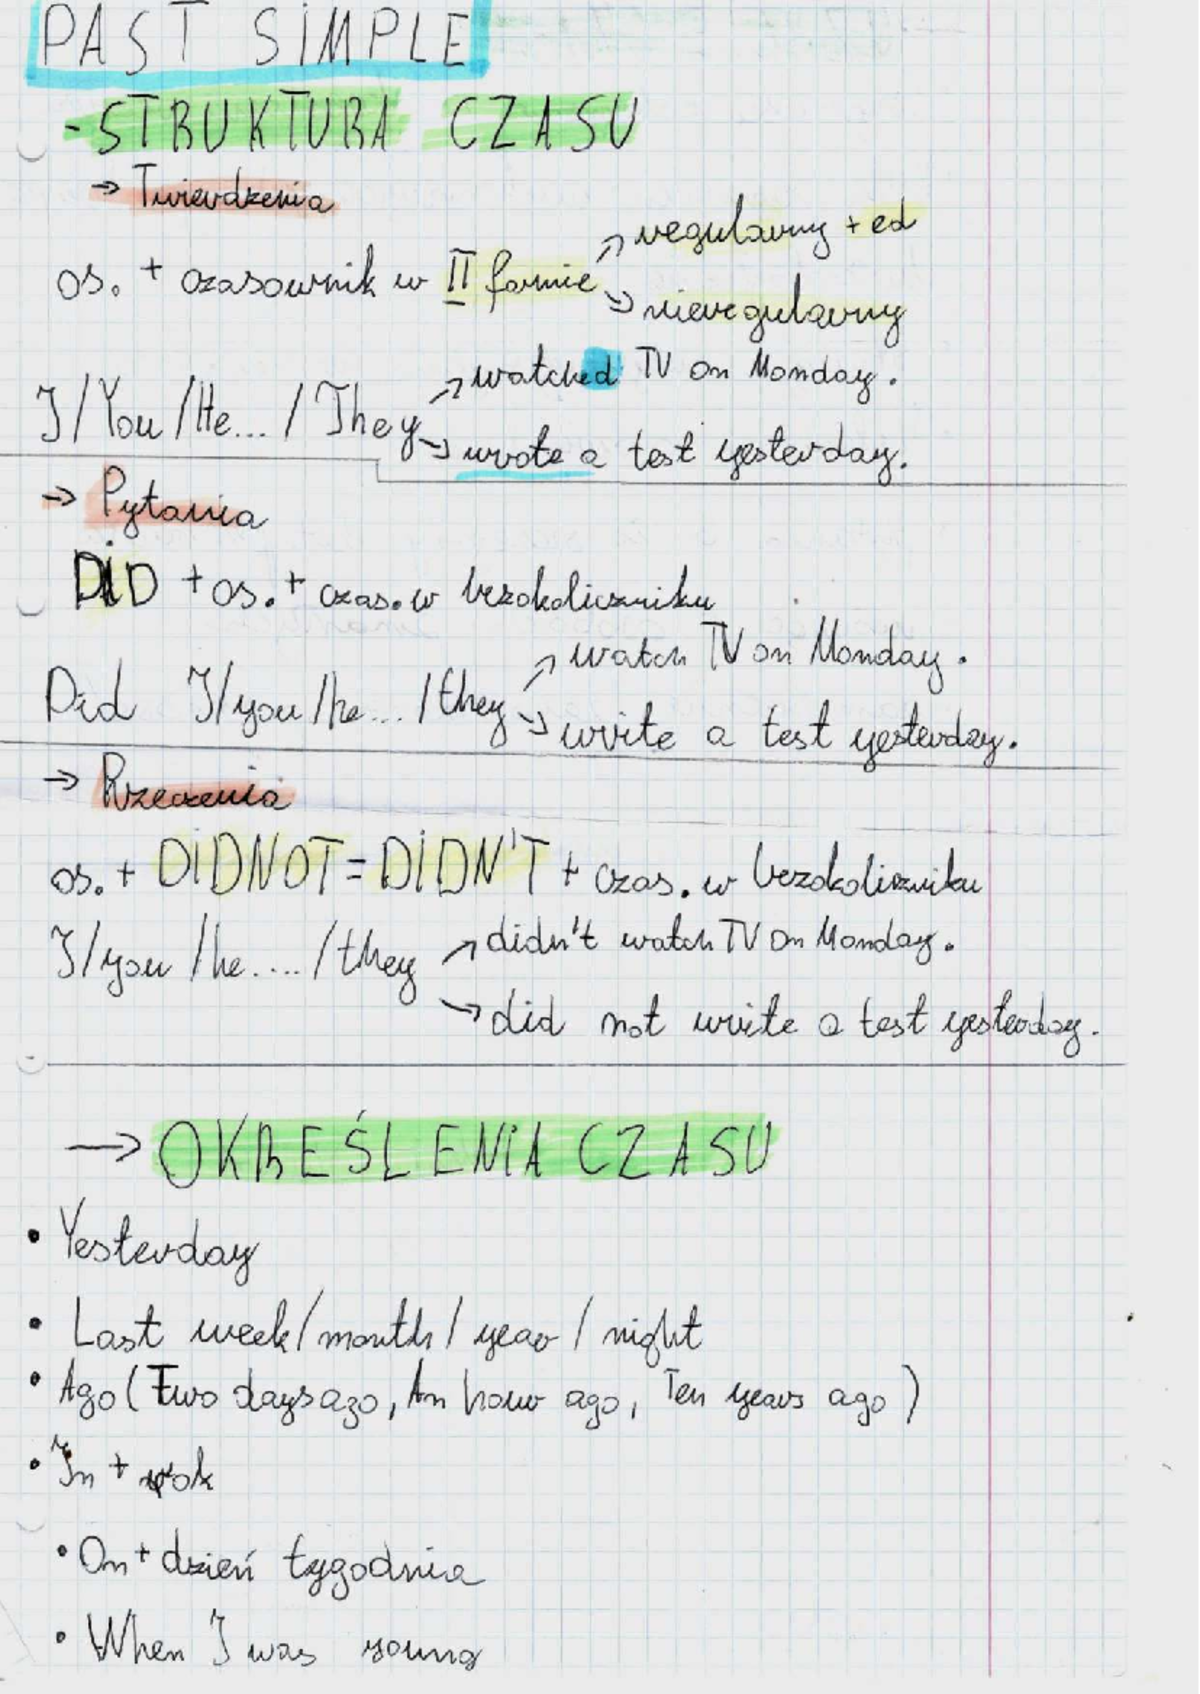 PAST SIMPLE
- STRUKTURA CZASU
→ Twierdzenia
os. + czasownik w II formie → regularny + ed
→ nieregularny
I/You/He... / They → watched TV on Monday.
→ wrote a test yesterday.
→ Pytania
DID + os. + czas. w bezokoliczniku
Did I/you/he... / they → watch TV on Monday.
→ write a test yesterday.
→ Przeczenia
os. + DIDNOT = DIDN'T + czas. w bezokoliczniku
I/you/he.... / they → didn't watch TV on Monday.
→ did not write a test yesterday.
→ OKREŚLENIA CZASU
• Yesterday
• Last week/month/year/night
• Ago (Two days ago, An hour ago, Ten years ago)
• In + rok
• On + dzień tygodnia
• When I was young